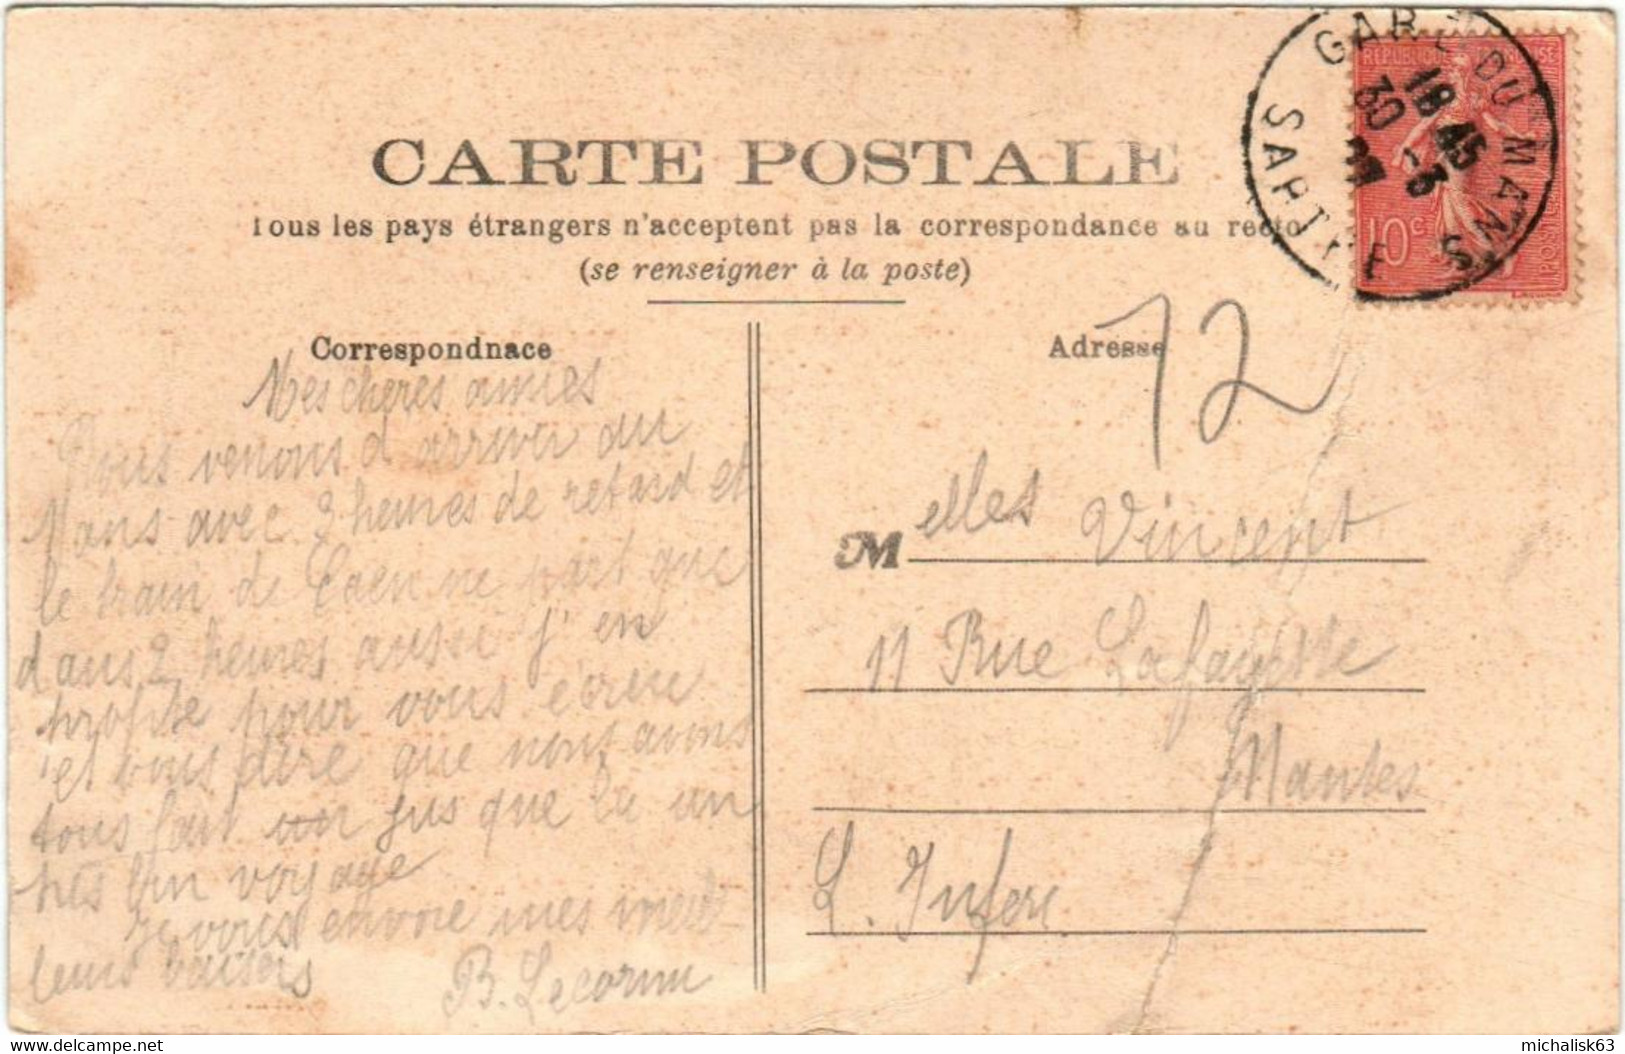 CARTE POSTALE
Tous les pays étrangers n'acceptent pas la correspondance au recto
(se renseigner à la poste)
GARE DU MANS
SARTHE
18 45
30 -3
07
REPUBLIQUE FRANÇAISE
10c
POSTES
Correspondnace
Mes cheres amies
Nous venons d'arriver au
Mans avec 2 heures de retard et
le train de Caen ne part que
dans 2 heures aussi j'en
profite pour vous écrire
et vous dire que nous avons
tous fait un jusque la un
très bon voyage
Je vous envoie mes meil-
leurs baisers
B. Lecornu
Adresse
72
Melles Vincent
11 Rue Lafayette
Nantes
L. Infere
delcampe.net
michalisk63